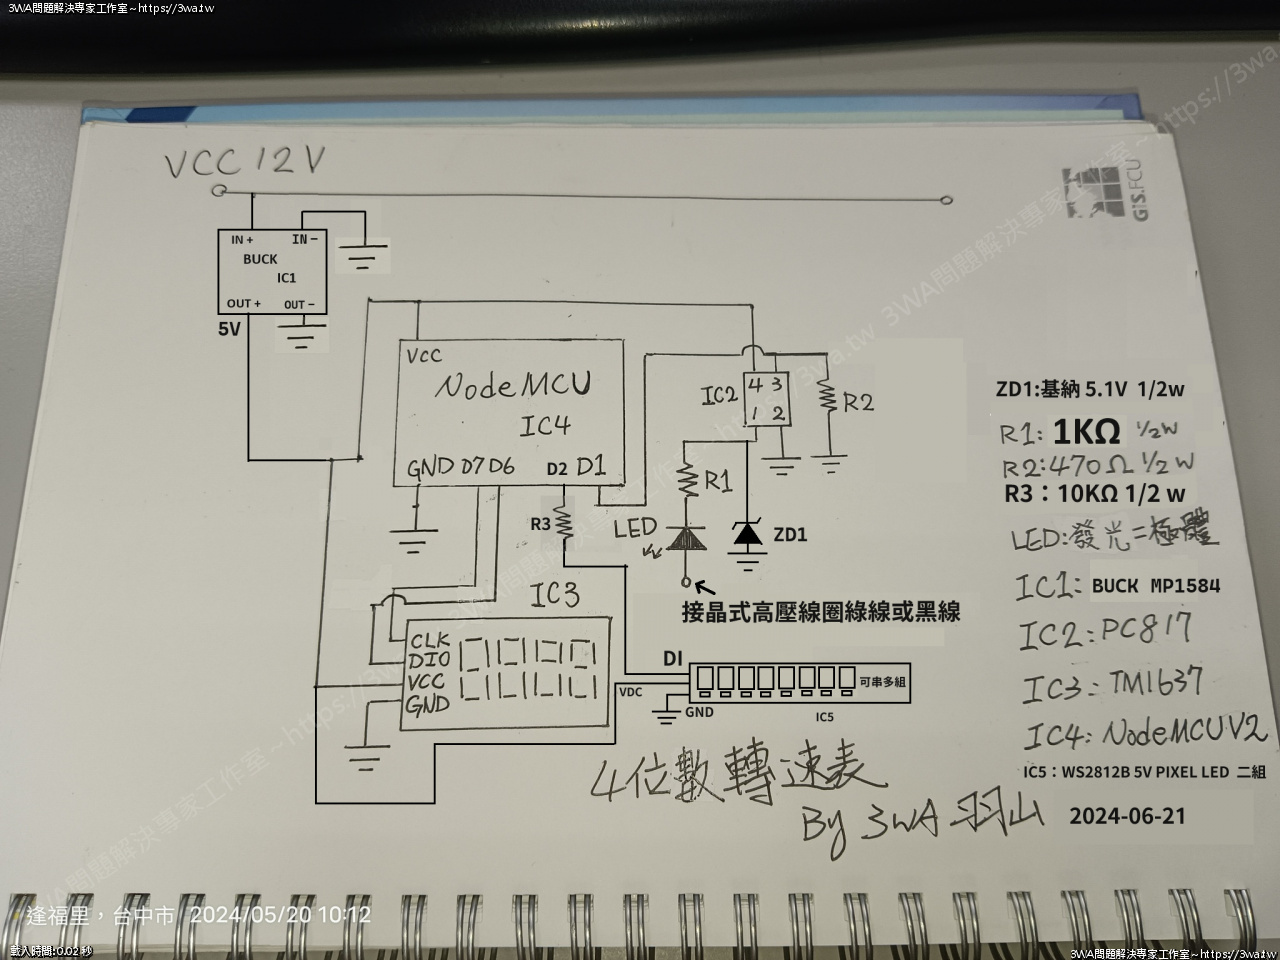 3WA問題解決專家工作室~https://3wa.tw
VCC 12V
GIS.FCU
IN + IN −
BUCK
IC1
OUT + OUT −
5V
VCC
NodeMCU
IC4
GND D7 D6 D2 D1
IC2
4 3
1 2
R2
R1
R3
LED
ZD1
接晶式高壓線圈綠線或黑線
IC3
CLK
DIO
VCC
GND
DI
可串多組
VDC
GND
IC5
ZD1:基納 5.1V 1/2w
R1: 1KΩ 1/2W
R2:470Ω 1/2W
R3：10KΩ 1/2 w
LED:發光二極體
IC1: BUCK MP1584
IC2: PC817
IC3: TM1637
IC4: NodeMCU V2
IC5：WS2812B 5V PIXEL LED 二組
4位數轉速表
By 3WA 羽山
2024-06-21
3WA問題解決專家工作室~https://3wa.tw
3WA問題解決專家工作室~https://3wa.tw
逢福里，台中市 2024/05/20 10:12
載入時間:0.02 秒
3WA問題解決專家工作室~https://3wa.tw